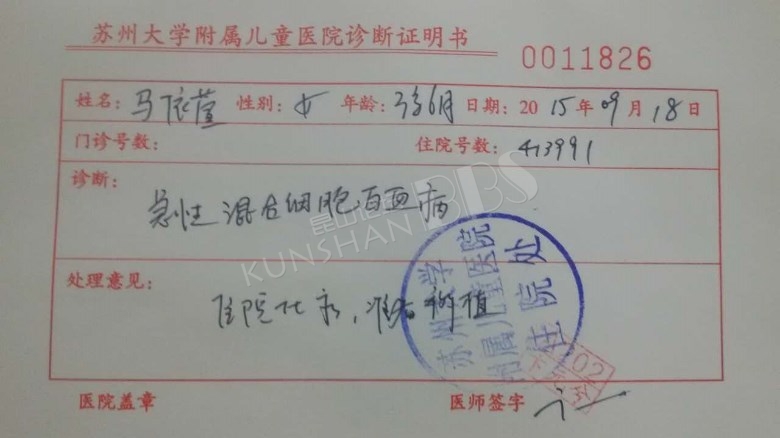 苏州大学附属儿童医院诊断证明书
0011826
姓名：马依萱 性别：女 年龄：3岁6月 日期：2015年09月18日
门诊号数： 住院号数：413991
诊断：
急性混合细胞白血病
昆山论坛 BBS
KUNSHAN
处理意见：
住院化疗，准备移植
苏州大学
附属儿童医院
住院处
医院盖章 医师签字